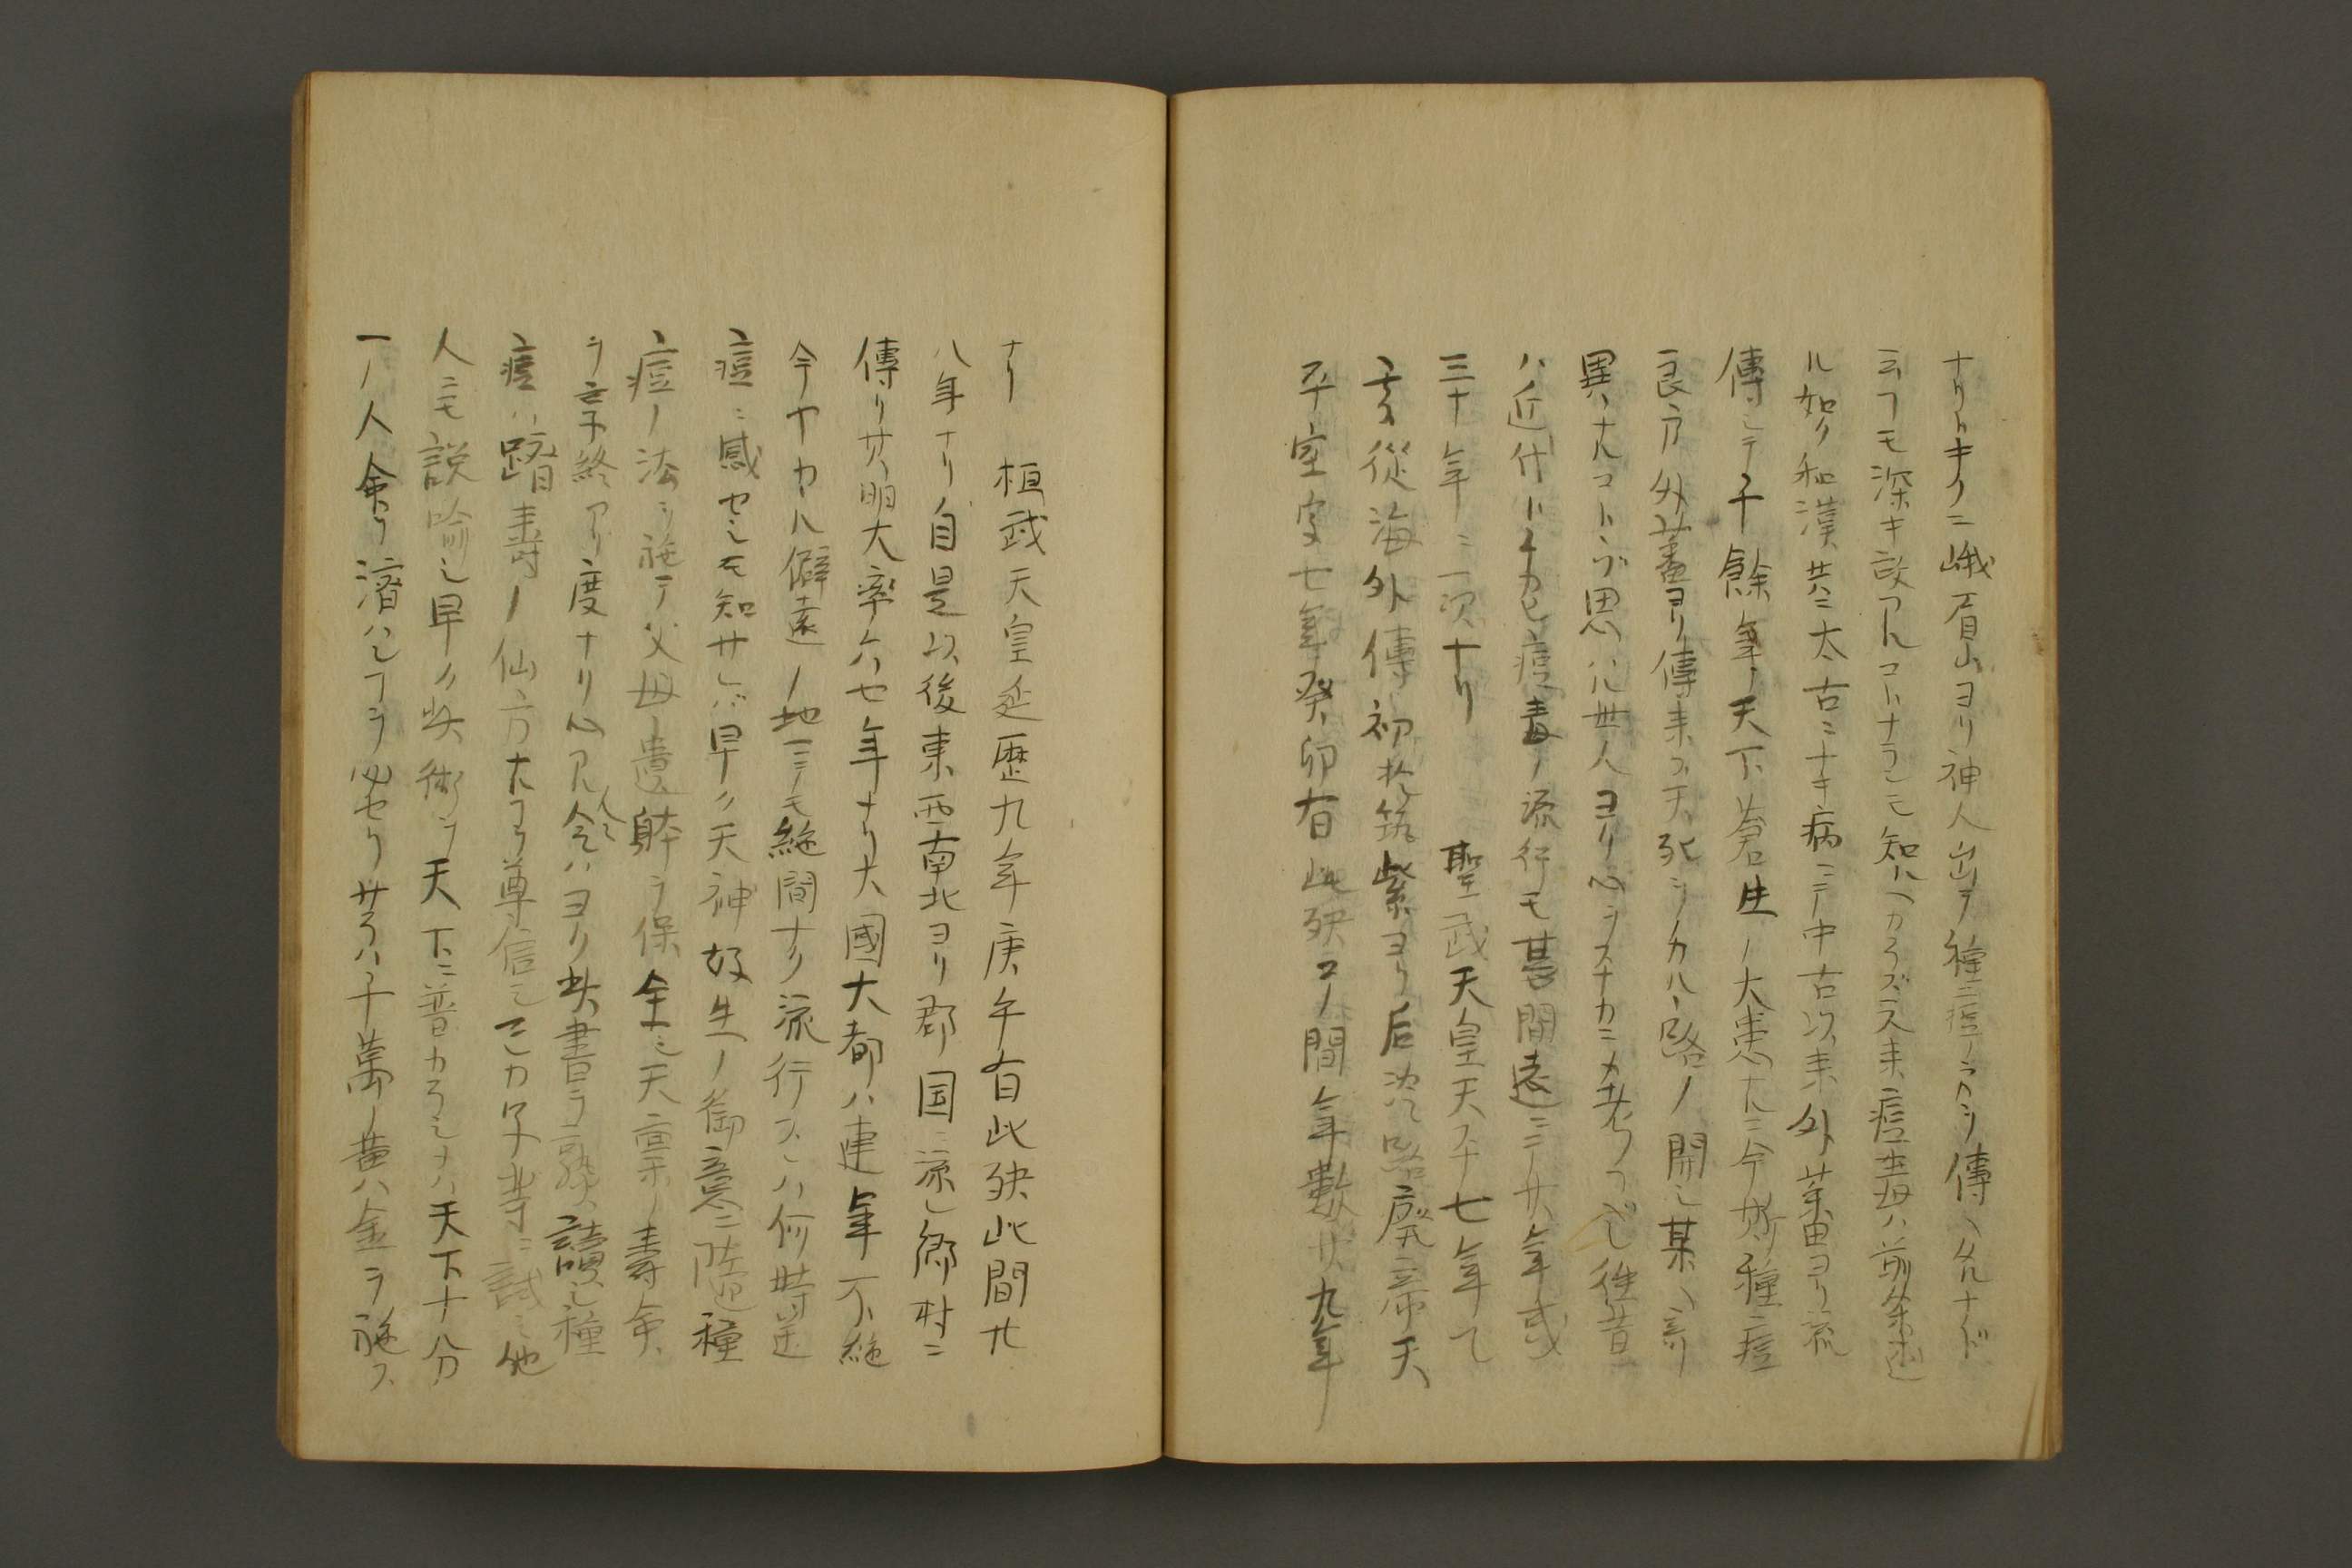 ナリトキクニ峨眉山ヨリ神人出テ種痘ノ傳ヘ
云フモ深キ故アルコトナランモ知ヘカラズ又来痘毒ハ前条述
ル如ク和漢共ニ太古ニナキ病ニテ中古以来外蕃ヨリ流
傳シテ千餘年ノ天下蒼生ノ大患ナルニ今種痘
良方外蕃ヨリ傳来フ夭死シ路ノ開
異ナルコト思ハル世人ヨリ心往昔
ハ近什トチカヒ痘毒ノ流行モ甚間遠ニテ廿年或
三十年ニ一次ナリ 聖武天皇天平七年
云従海外傳初於筑紫ヨリ后淡路廢帝天
平宝字七年癸卯有此殃コノ間年數廿九年
ナリ 桓武天皇延歴九年庚午有此殃此間廿
八年ナリ自是以後東西南北ヨリ郡国ニ流シ郷村ニ
傳リ其明大率六七年ナリ大國大都ハ連年不絶
今ヤカヽル僻遠ノ地ニテモ絶間ナク流行スレハ何時
痘ニ感セシモ知サレバ早ク天神好生ノ御意ニ随種
痘ノ法ヲ施テ父母ノ遺躰ヲ保全シ天稟ノ壽命
ヲ終アリ度ナリ心アル人々ハヨク此書ヲ熟讀シ種
痘ハ躋壽ノ仙方ナルヲ尊信シワカ子等ニ試ミ他
人ニモ説喩シ早ク此術ヲ天下ニ普カラシメハ天下十分
一ノ人命ヲ済ハシコヲ必セリサラハ千萬ノ黄金ヲ施ス